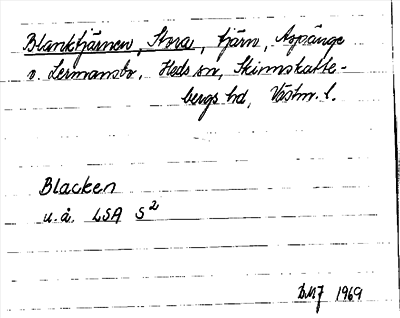 Blanktjärnen, Stora, tjärn, Aspänge
o. Lermansbo, Heds sn, Skinnskatte-
bergs hd, Västm. l.
Blacken
u.å. LSA S2
1969